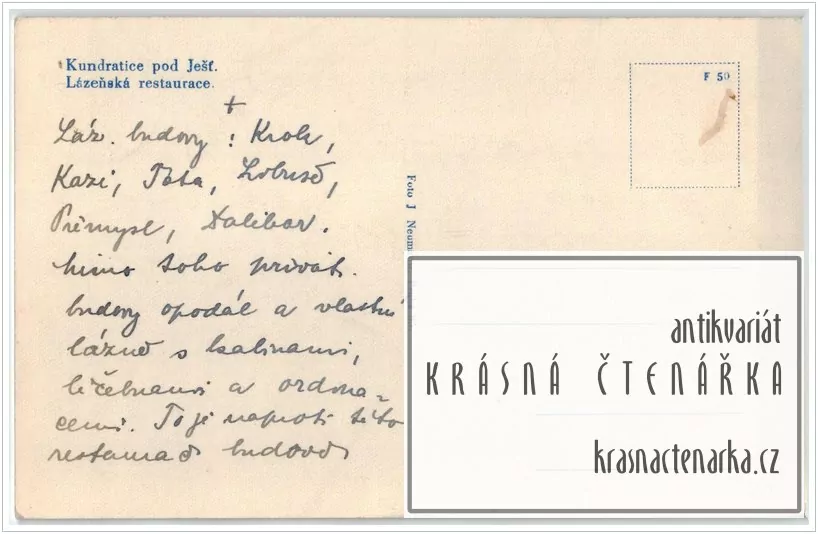 Kundratice pod Ješť.
Lázeňská restaurace.
F 50
+
Láz. budovy : Krok,
Kazi, Teta, Libuše,
Přemysl, Dalibor.
Mimo toho privát.
budovy opodál a vlastní
lázně s kabinami,
léčebnami a ordina-
cemi. To je naproti této
restaurač budově
Foto J Neum
antikvariát
KRÁSNÁ ČTENÁŘKA
krasnactenarka.cz